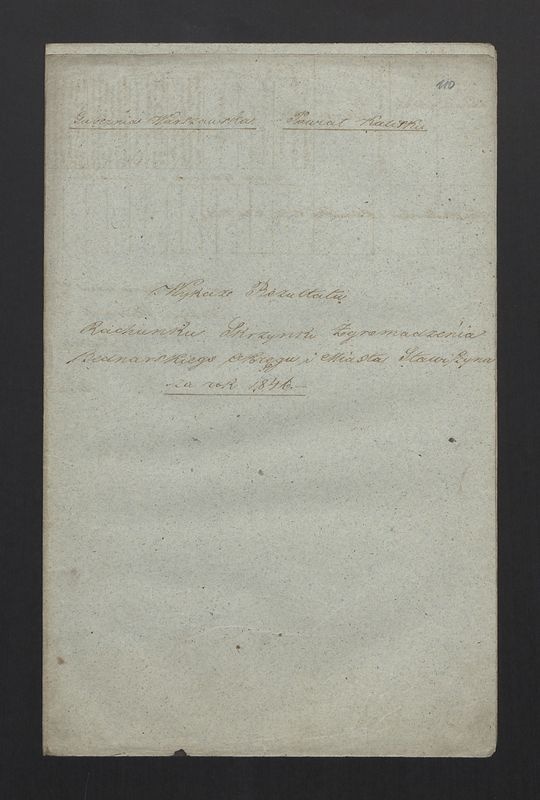 110
Gubernia Warszawska Powiat Kaliski
Wykaz Rezultatu
Rachunku Skrzynki Zgromadzenia
Bednarskiego Okręgu i Miasta Stawiszyna
za rok 1846